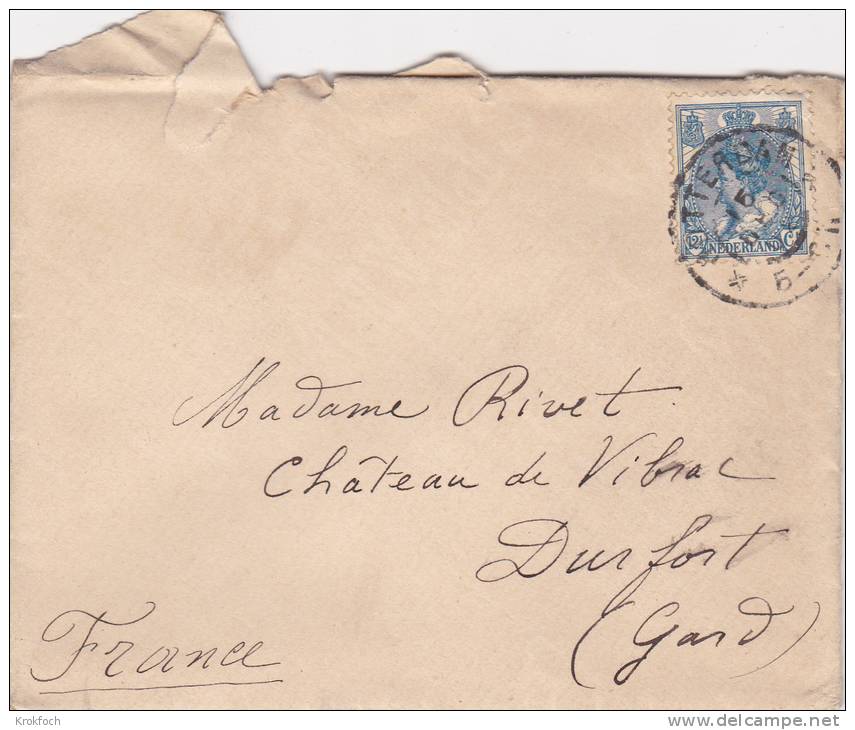 12½ Ct
NEDERLAND
Madame Rivet
Château de Vibrac
Durfort
(Gard)
France
Krokfoch
www.delcampe.net